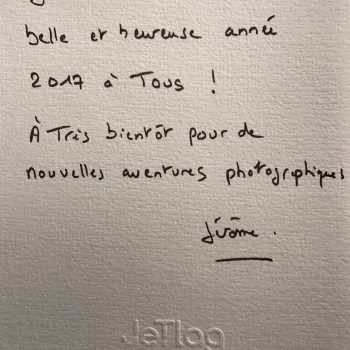 belle et heureuse année
2017 à Tous !
À Très bientôt pour de
nouvelles aventures photographiques
Jérôme.
JeTlag